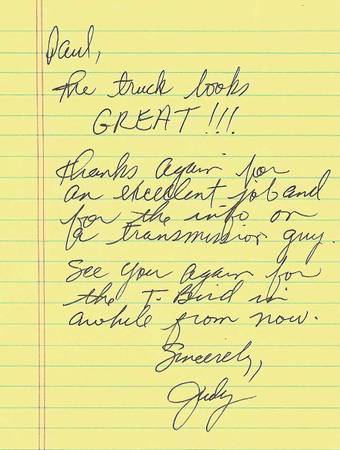 Paul,
the truck looks
GREAT!!!
thanks again for
an excellent job and
for the info on
a transmission guy.
See you again for
the T-Bird in
awhile from now.
Sincerely,
Judy